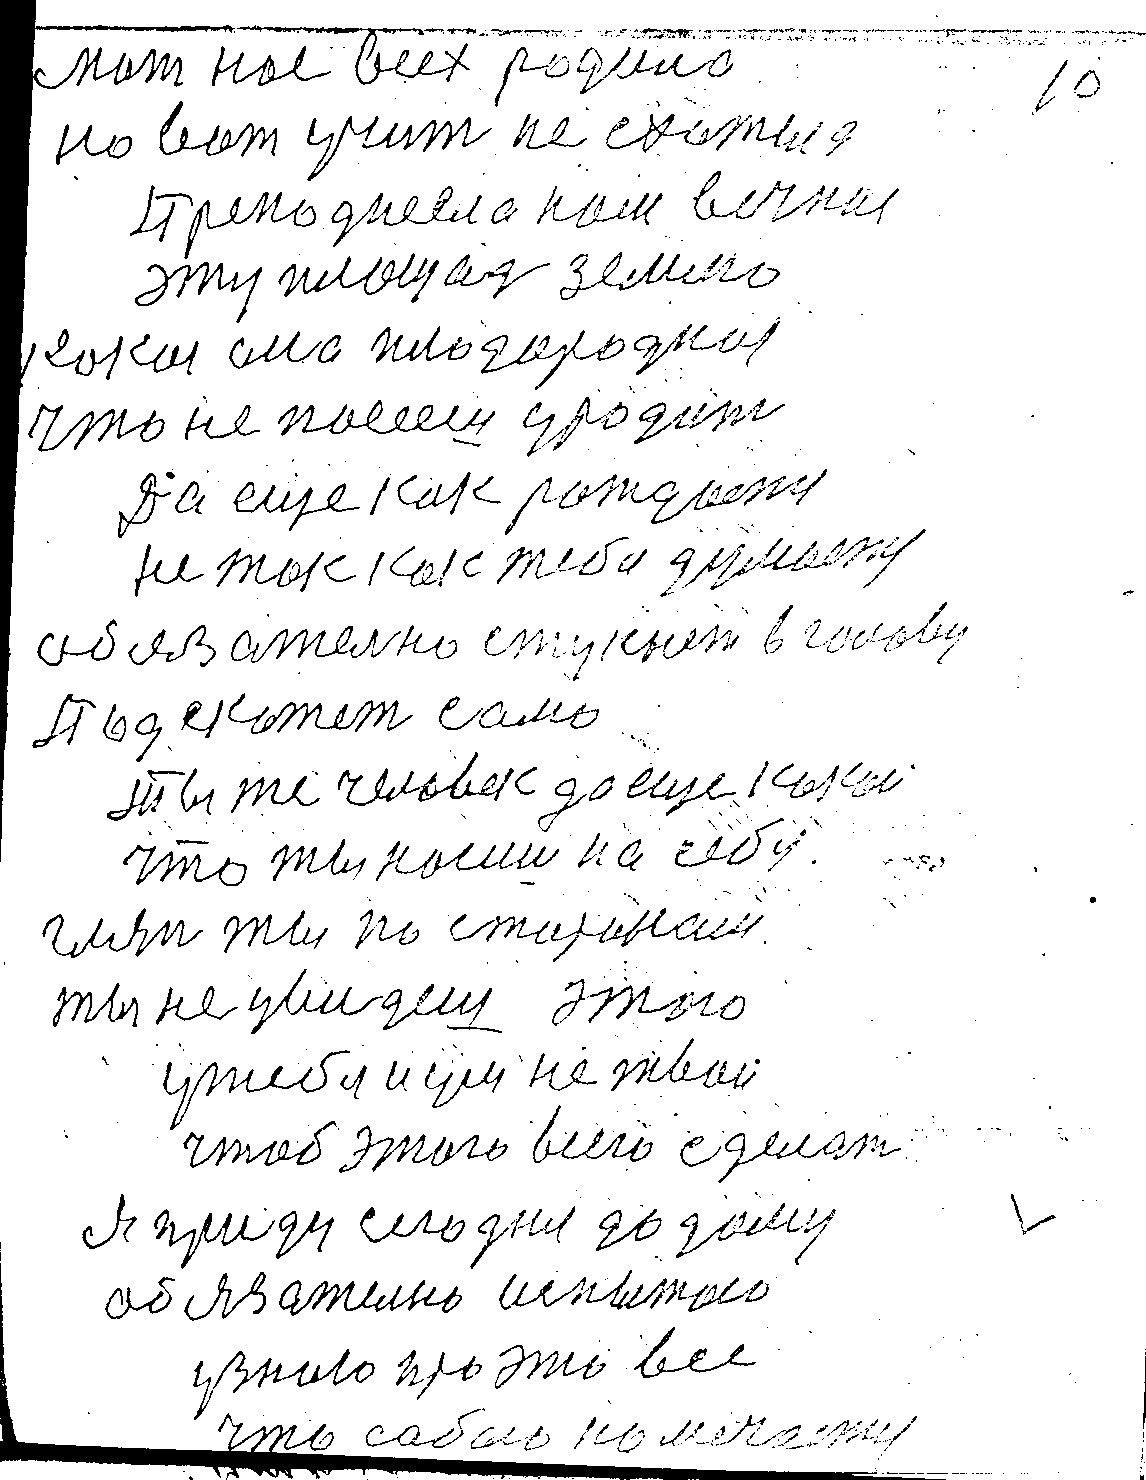 мат нас всех родила
10
но вот учит не схотила
Преподнесла нам вечная
эту площад землю
какая она плодародная
что не посееш уродит
Да еще как рождаету
не так как тебя думаету
обязателно стукнет в голову
Подскажет само
Ты же человек да еще какой
что ты носиш на себу
гляп ты по старонам
ты не увидеш этого
утебя и ум не твой
чтоб этого всего сделат
Я приду сегодня до дому
обязателно испытаю
узнаю про это все
что сабою намечаету